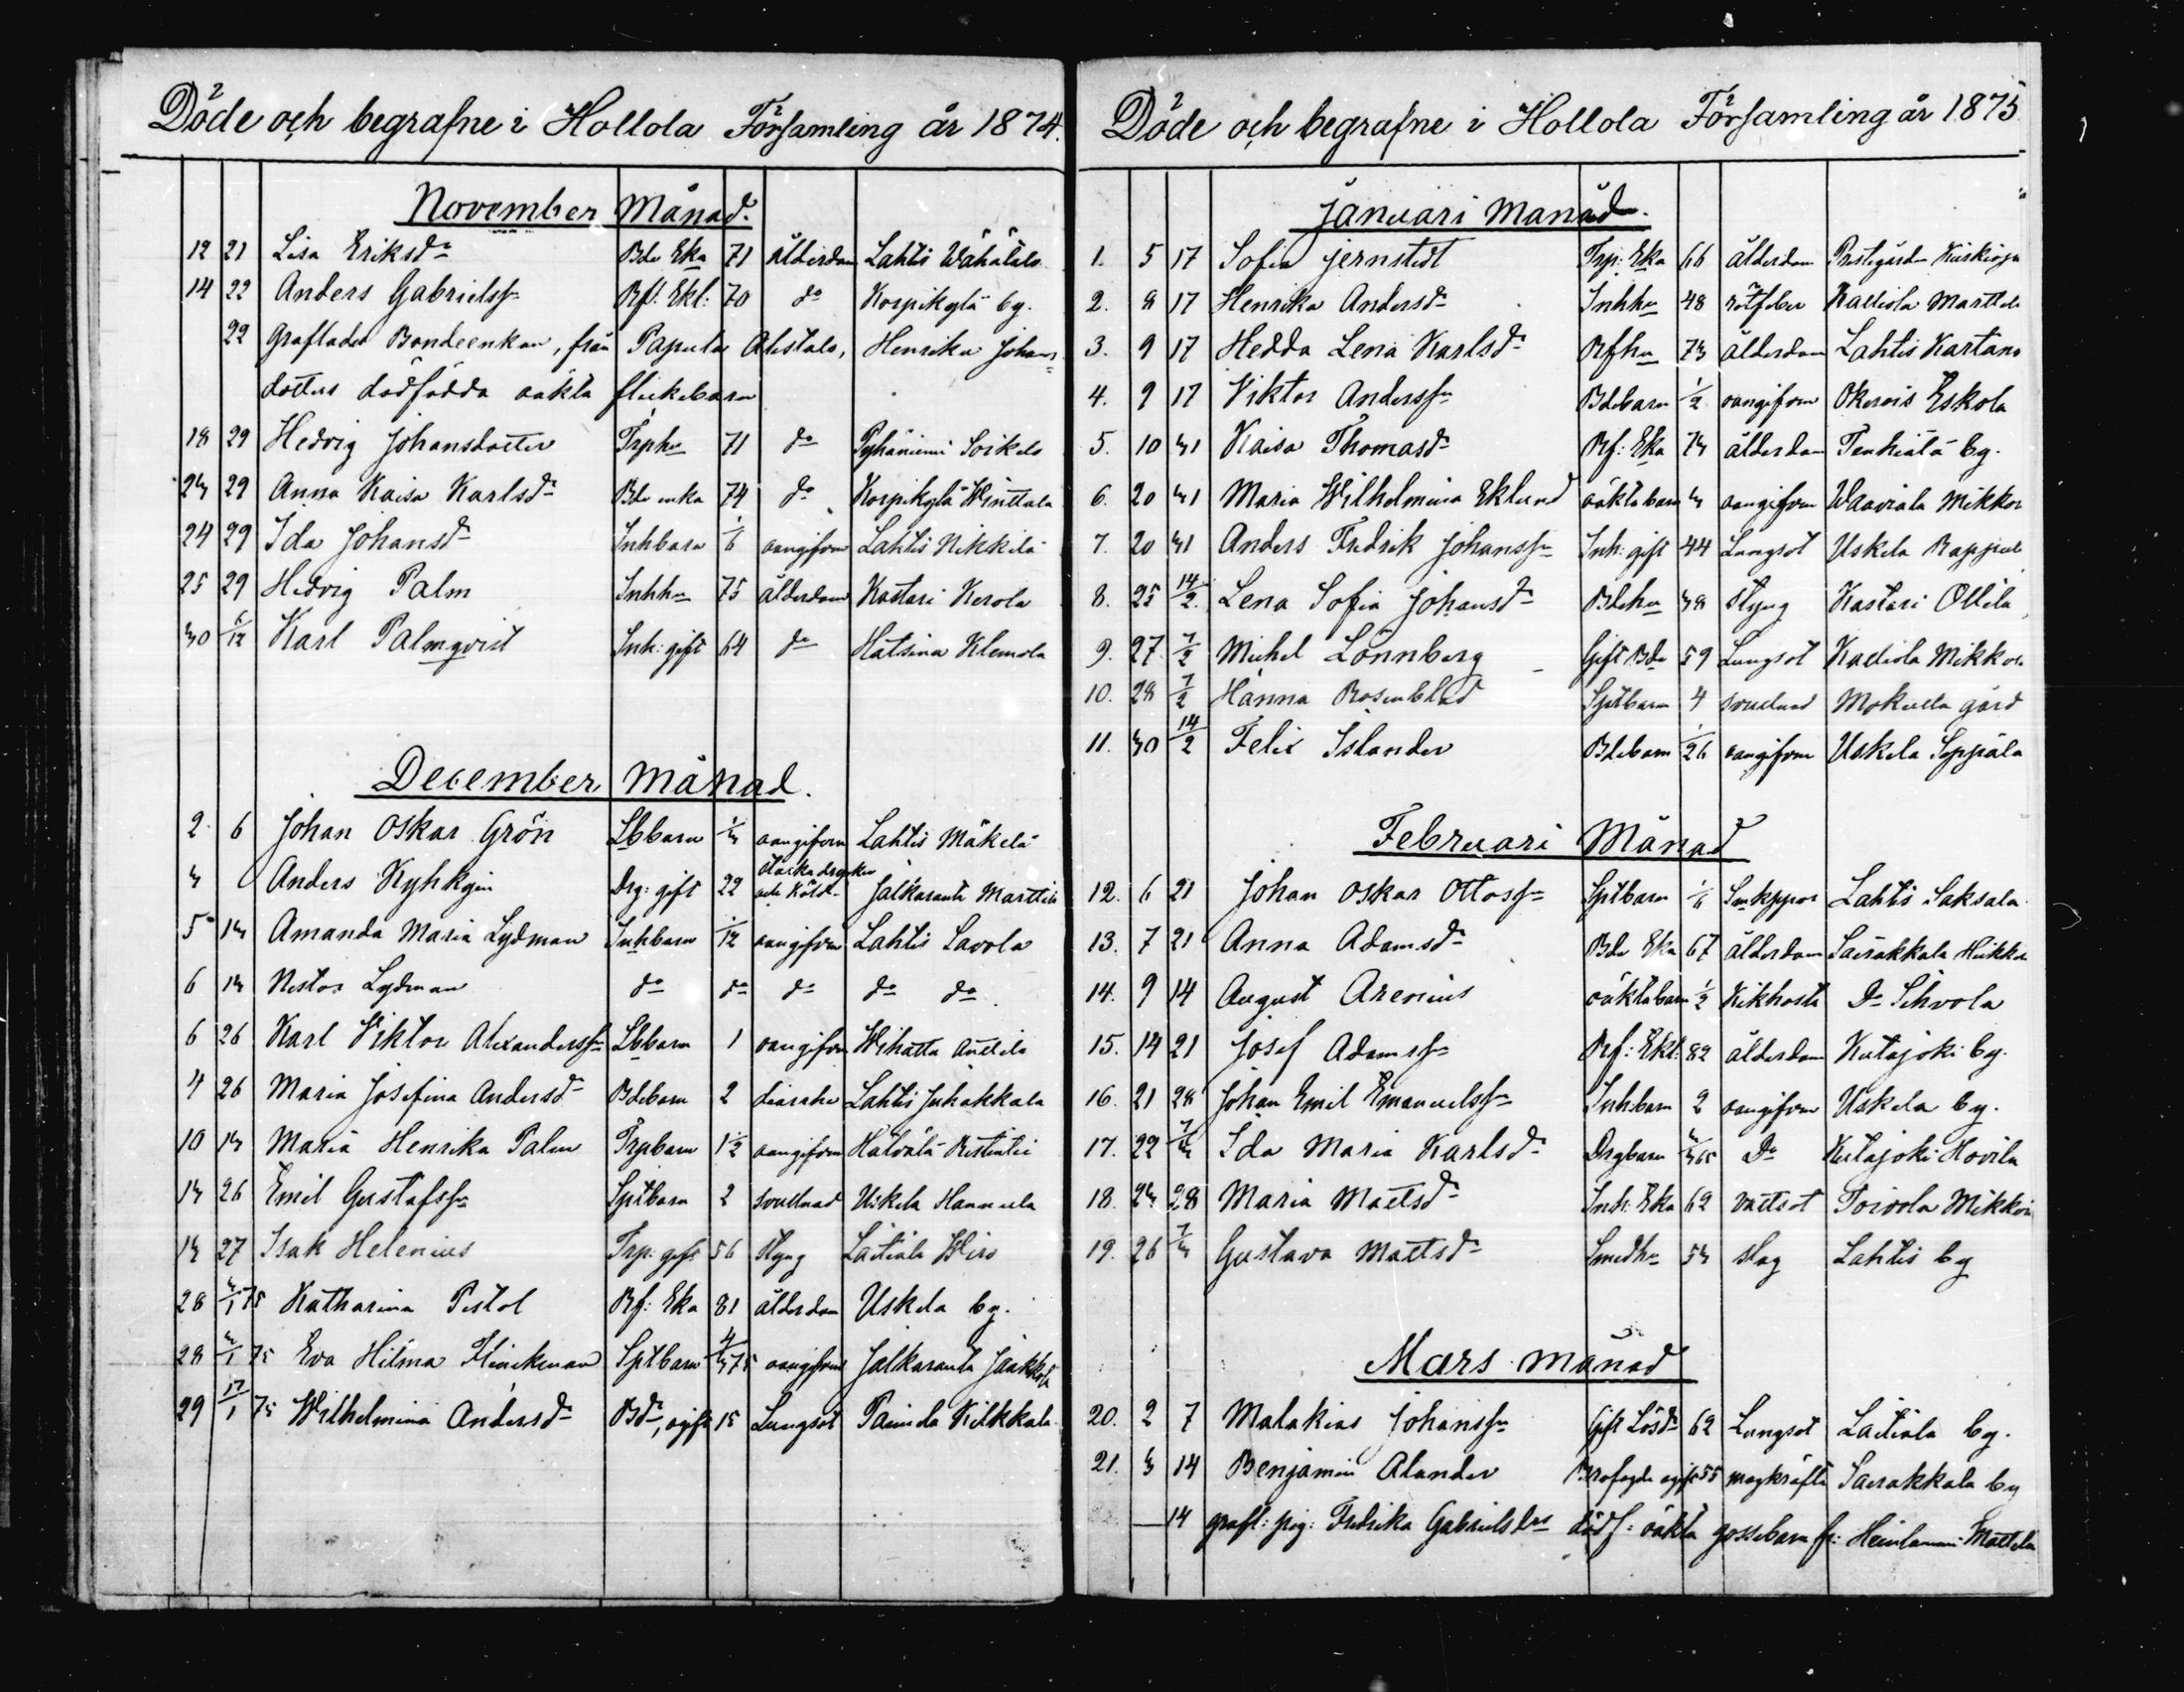 Döde och begrafne i Hollola Församling år 1874.
November Månad.
12 21 Lisa Eriksdr Bde Eka 71 ålderdom Lahtis Wähälälä
14 22 Anders Gabrielssn Rft: Ekl: 70 do Korpikylä by.
22 Graflades Bondeenkan, från Papula Alistalo, Henrika Johans=
dotters dödfödda oäkta flickebarn
18 29 Hedvig Johansdotter Trphu 71 do Pyhäniemi Soikels
23 29 Anna Kaisa Karlsdr Bde enka 74 do Korpikylä Winttala
24 29 Ida Johansdr Inhbarn 1/6 oangifven Lahtis Nikkilä
25 29 Hedvig Palm Inhhu 75 ålderdom Kastari Kerola
30 6/12 Karl Palmqvist Inh: gift 64 do Hatsina Klemola
December Månad.
2 6 Johan Oskar Grön Lbbarn 1/3 oangifven Lahtis Mäkelä
3 Anders Kyhkyin Drg: gift 22 starka drycker och köld Jalkaranta Marttila
5 13 Amanda Maria Lydman Inhbarn 1/12 oangifven Lahtis Lavola
6 13 Nestor Lydman do do do do do.
6 26 Karl Viktor Alexanderssn Lbbarn 1 oangifven Wihatta Anttila
4 26 Maria Josefina Andersdr Bdebarn 2 diarrhe Lahtis Juhakkala
10 13 Maria Henrika Palm Trpbarn 1 1/2 oangifven Hätälä
13 26 Emil Gustafssn Sptbarn 2 svullnad Uskila Hannula
13 27 Isak Helenius Trp: gift 56 styng Laitiala Wiro
28 3/1 75 Katharina Pistol Rf: Eka 81 ålderdom Uskila by.
28 3/1 75 Eva Hilma Flinckman Sptbarn 4/375 oangifven Jalkaranta Jaakkola
29 17/1 75 Wilhelmina Andersdr Bdr, ogift 15 Lungsot Paimela Kilkkala
Döde och begrafne i Hollola Församling år 1875
Januari Månad.
1. 5 17 Sofia Jernstedt Trp: Eka 66 ålderdom Prestgården
2. 8 17 Henrika Andersdr Inhhu 48 rötfeber Kalliola Marttila
3. 9 17 Hedda Lena Karlsdr Rfhu 73 ålderdom Lahtis Kartano
4. 9 17 Viktor Anderssn Bdebarn 1/2 oangifven Okerois Eskola
5. 10 31 Kaisa Thomasdr Rf: Eka 73 ålderdom Tenhiälä by.
6. 20 31 Maria Wilhelmina Eklund oäktabarn 3 oangifven Waaviala Mikkola
7. 20 31 Anders Fredrik Johanssn Inh: gift 44 Lungsot Uskila
8. 25 14/2 Lena Sofia Johansdr Bdehu 38 Styng Kastari Ollila
9. 27 7/2 Michel Lönnberg Gift Bde 59 Lungsot Kalliola Mikkola
10. 28 7/2 Hanna Rosenblad Sptbarn 4 svullnad Mokulla gård
11. 30 14/2 Felix Islander Bdebarn 1/26 oangifven Uskila Seppälä
Februari Månad
12. 6 21 Johan Oskar Ottossn Sptbarn 1/6 Smkppor Lahtis Saksala
13. 7 21 Anna Adamsdr Bde Eka 67 ålderdom Sairakkala Heikkilä
14. 9 14 August Arenius oäktabarn 1/2 Kikhosta Do Sihvola
15. 14 21 Josef Adamssn Rf: Ekl: 82 ålderdom Kutajoki by.
16. 21 28 Johan Emil Emanuelssn Inhbarn 2 oangifven Uskila by.
17. 22 7/3 Ida Maria Karlsdr Drgbarn Do Kutajoki Hovila
18. 23 28 Maria Mattsdr Inh: Eka 62 vattsot Toivola Mikkola
19. 26 7/3 Gustava Mattsdr Smedhu 53 slag Lahtis by
Mars månad
20. 2 7 Malakias Johanssn Gift Lösdr 62 Lungsot Laitiala by.
21. 3 14 Benjamin Alander ogift 55 magkräfta Sairakkala by
14 grafl: pig: Fredrika Gabrielsdrs dödf: oäkta gossebarn fr: Heinlammi Mattila